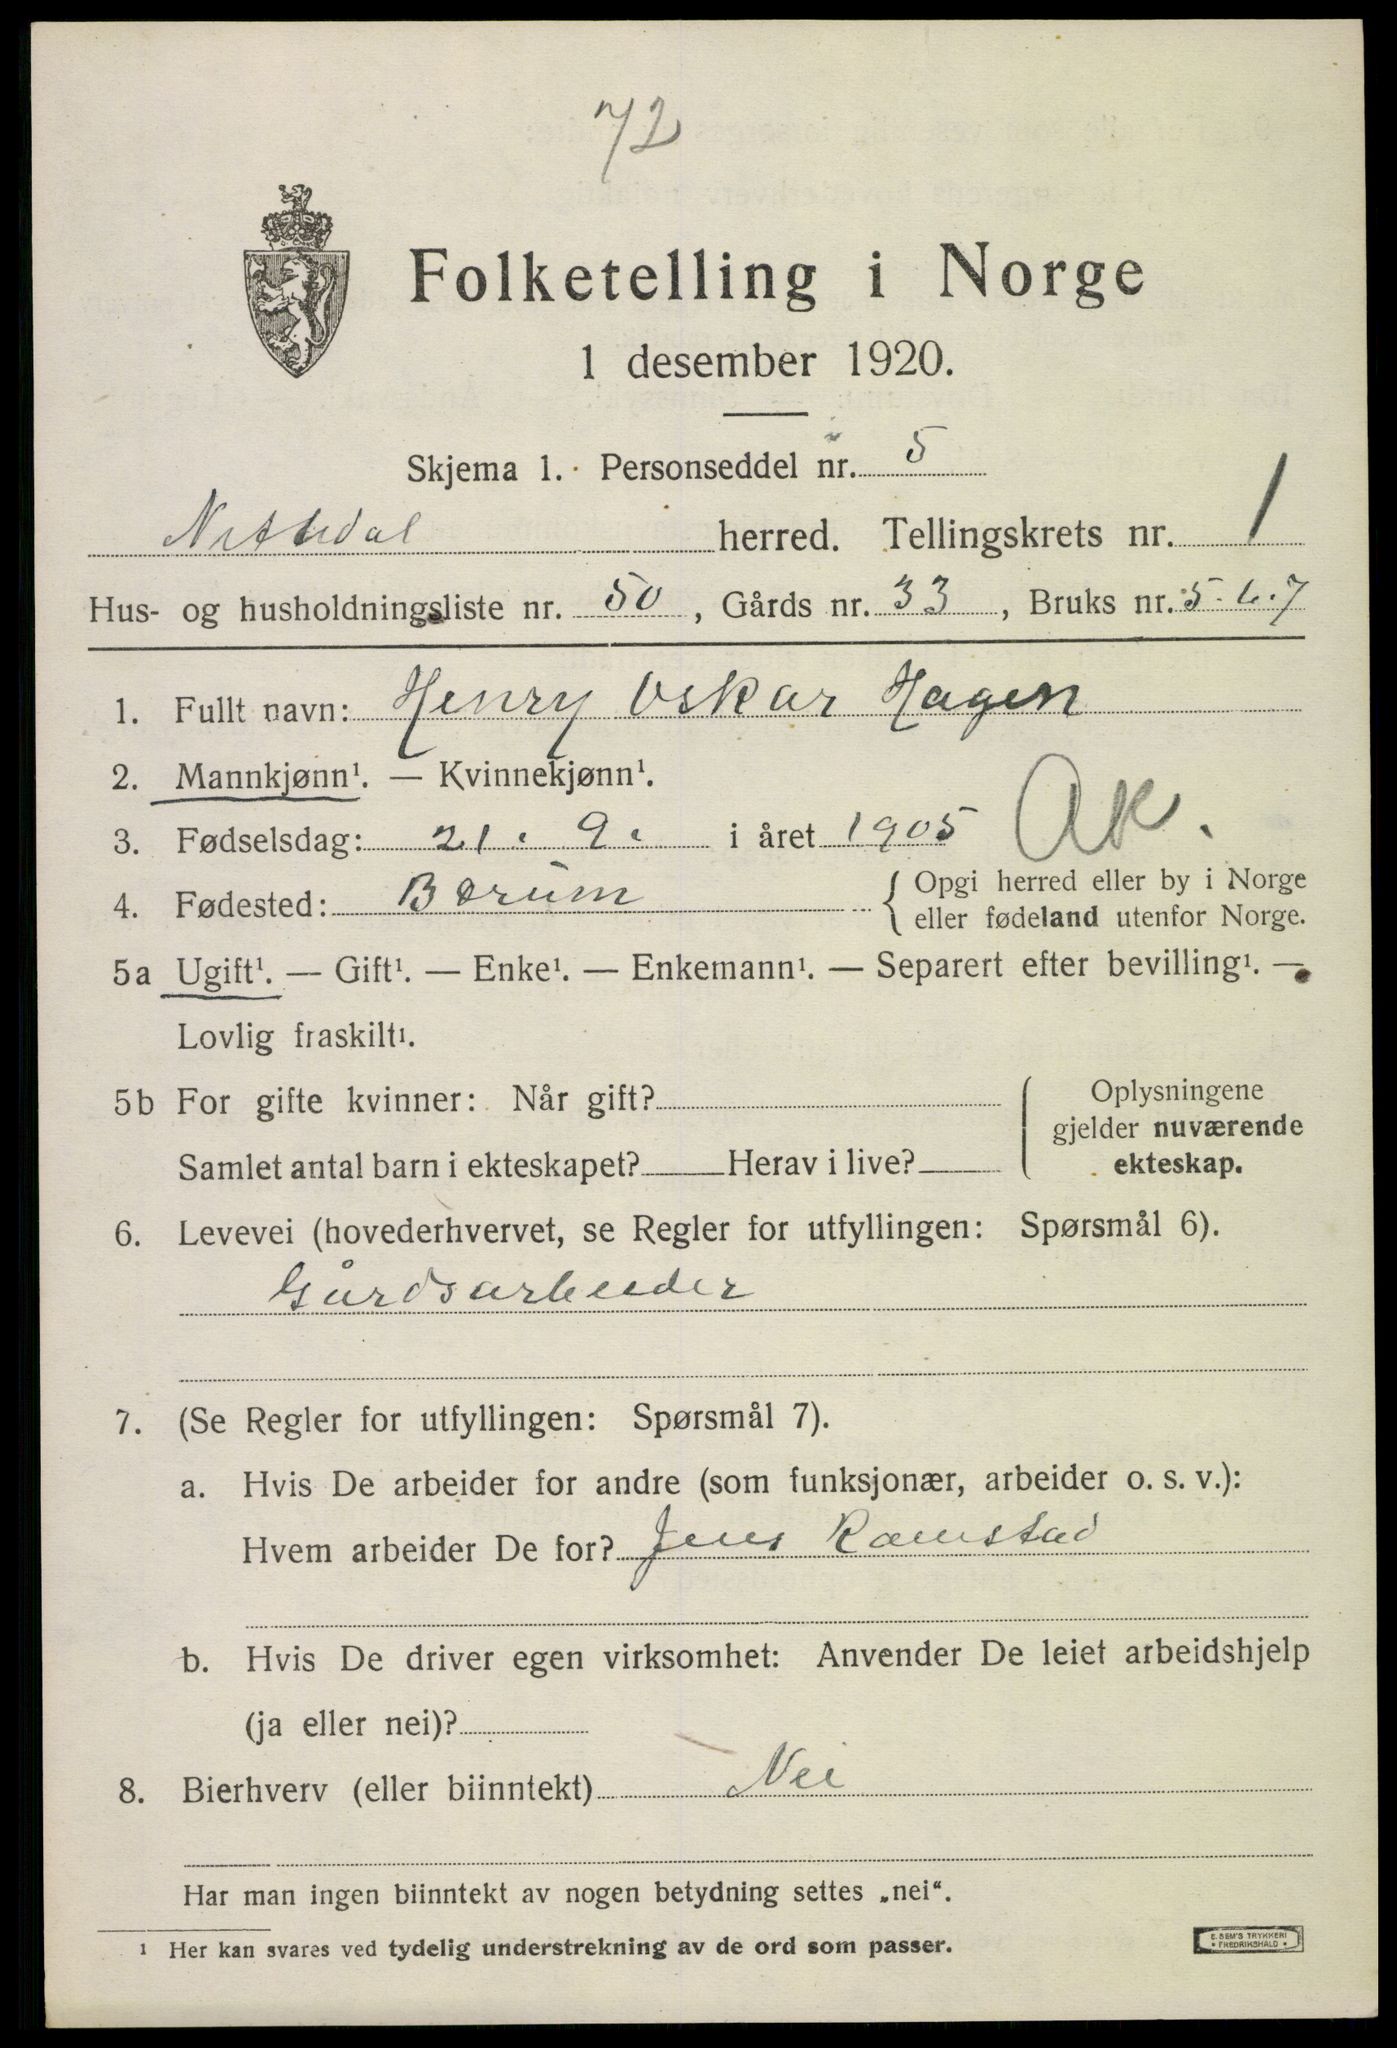 72
Folketelling i Norge
1 desember 1920.
Skjema 1. Personseddel nr. 5
Nittedal herred. Tellingskrets nr. 1
Hus- og husholdningsliste nr. 50, Gårds nr. 33, Bruks nr. 5-6.7
1. Fullt navn: Henry Oskar Hagen
2. Mannkjønn¹. — Kvinnekjønn¹.
3. Fødselsdag: 21. 9. i året 1905 AK.
4. Fødested: Bærum { Opgi herred eller by i Norge
eller fødeland utenfor Norge.
5a Ugift¹. — Gift¹. — Enke¹. — Enkemann¹. — Separert efter bevilling¹. —
Lovlig fraskilt¹.
5b For gifte kvinner: Når gift?
Samlet antal barn i ekteskapet? Herav i live?
Oplysningene
gjelder nuværende
ekteskap.
6. Levevei (hovederhvervet, se Regler for utfyllingen: Spørsmål 6).
Gårdsarbeider
7. (Se Regler for utfyllingen: Spørsmål 7).
a. Hvis De arbeider for andre (som funksjonær, arbeider o. s. v.):
Hvem arbeider De for? Jens Ramstad
b. Hvis De driver egen virksomhet: Anvender De leiet arbeidshjelp
(ja eller nei)?
8. Bierhverv (eller biinntekt) Nei
Har man ingen biinntekt av nogen betydning settes „nei“.
¹ Her kan svares ved tydelig understrekning av de ord som passer.
E. SEM'S TRYKKERI
• FREDRIKSHALD •